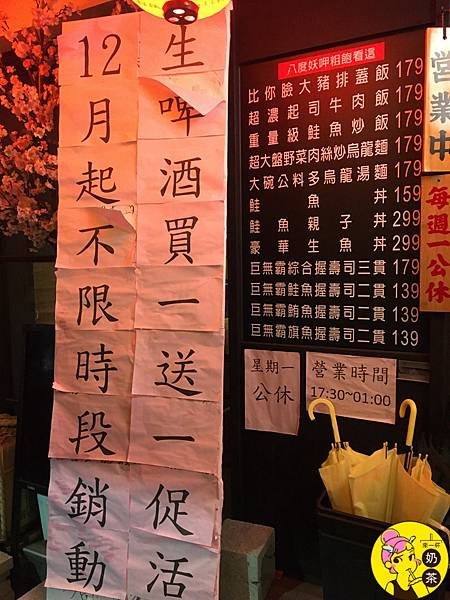 生啤酒買一送一促活
12月起不限時段銷動
八度妖呷粗飽看這
比你臉大豬排蓋飯 179
超濃起司牛肉飯 179
重量級鮭魚炒飯 179
超大盤野菜肉絲炒烏龍麵 179
大碗公料多烏龍湯麵 179
鮭魚丼 159
鮭魚親子丼 299
豪華生魚丼 299
巨無霸綜合握壽司三貫 179
巨無霸鮭魚握壽司二貫 139
巨無霸鮪魚握壽司二貫 139
巨無霸旗魚握壽司二貫 139
營業中
每週一公休
星期一
公休
營業時間
17:30~01:00
來一杯
奶茶